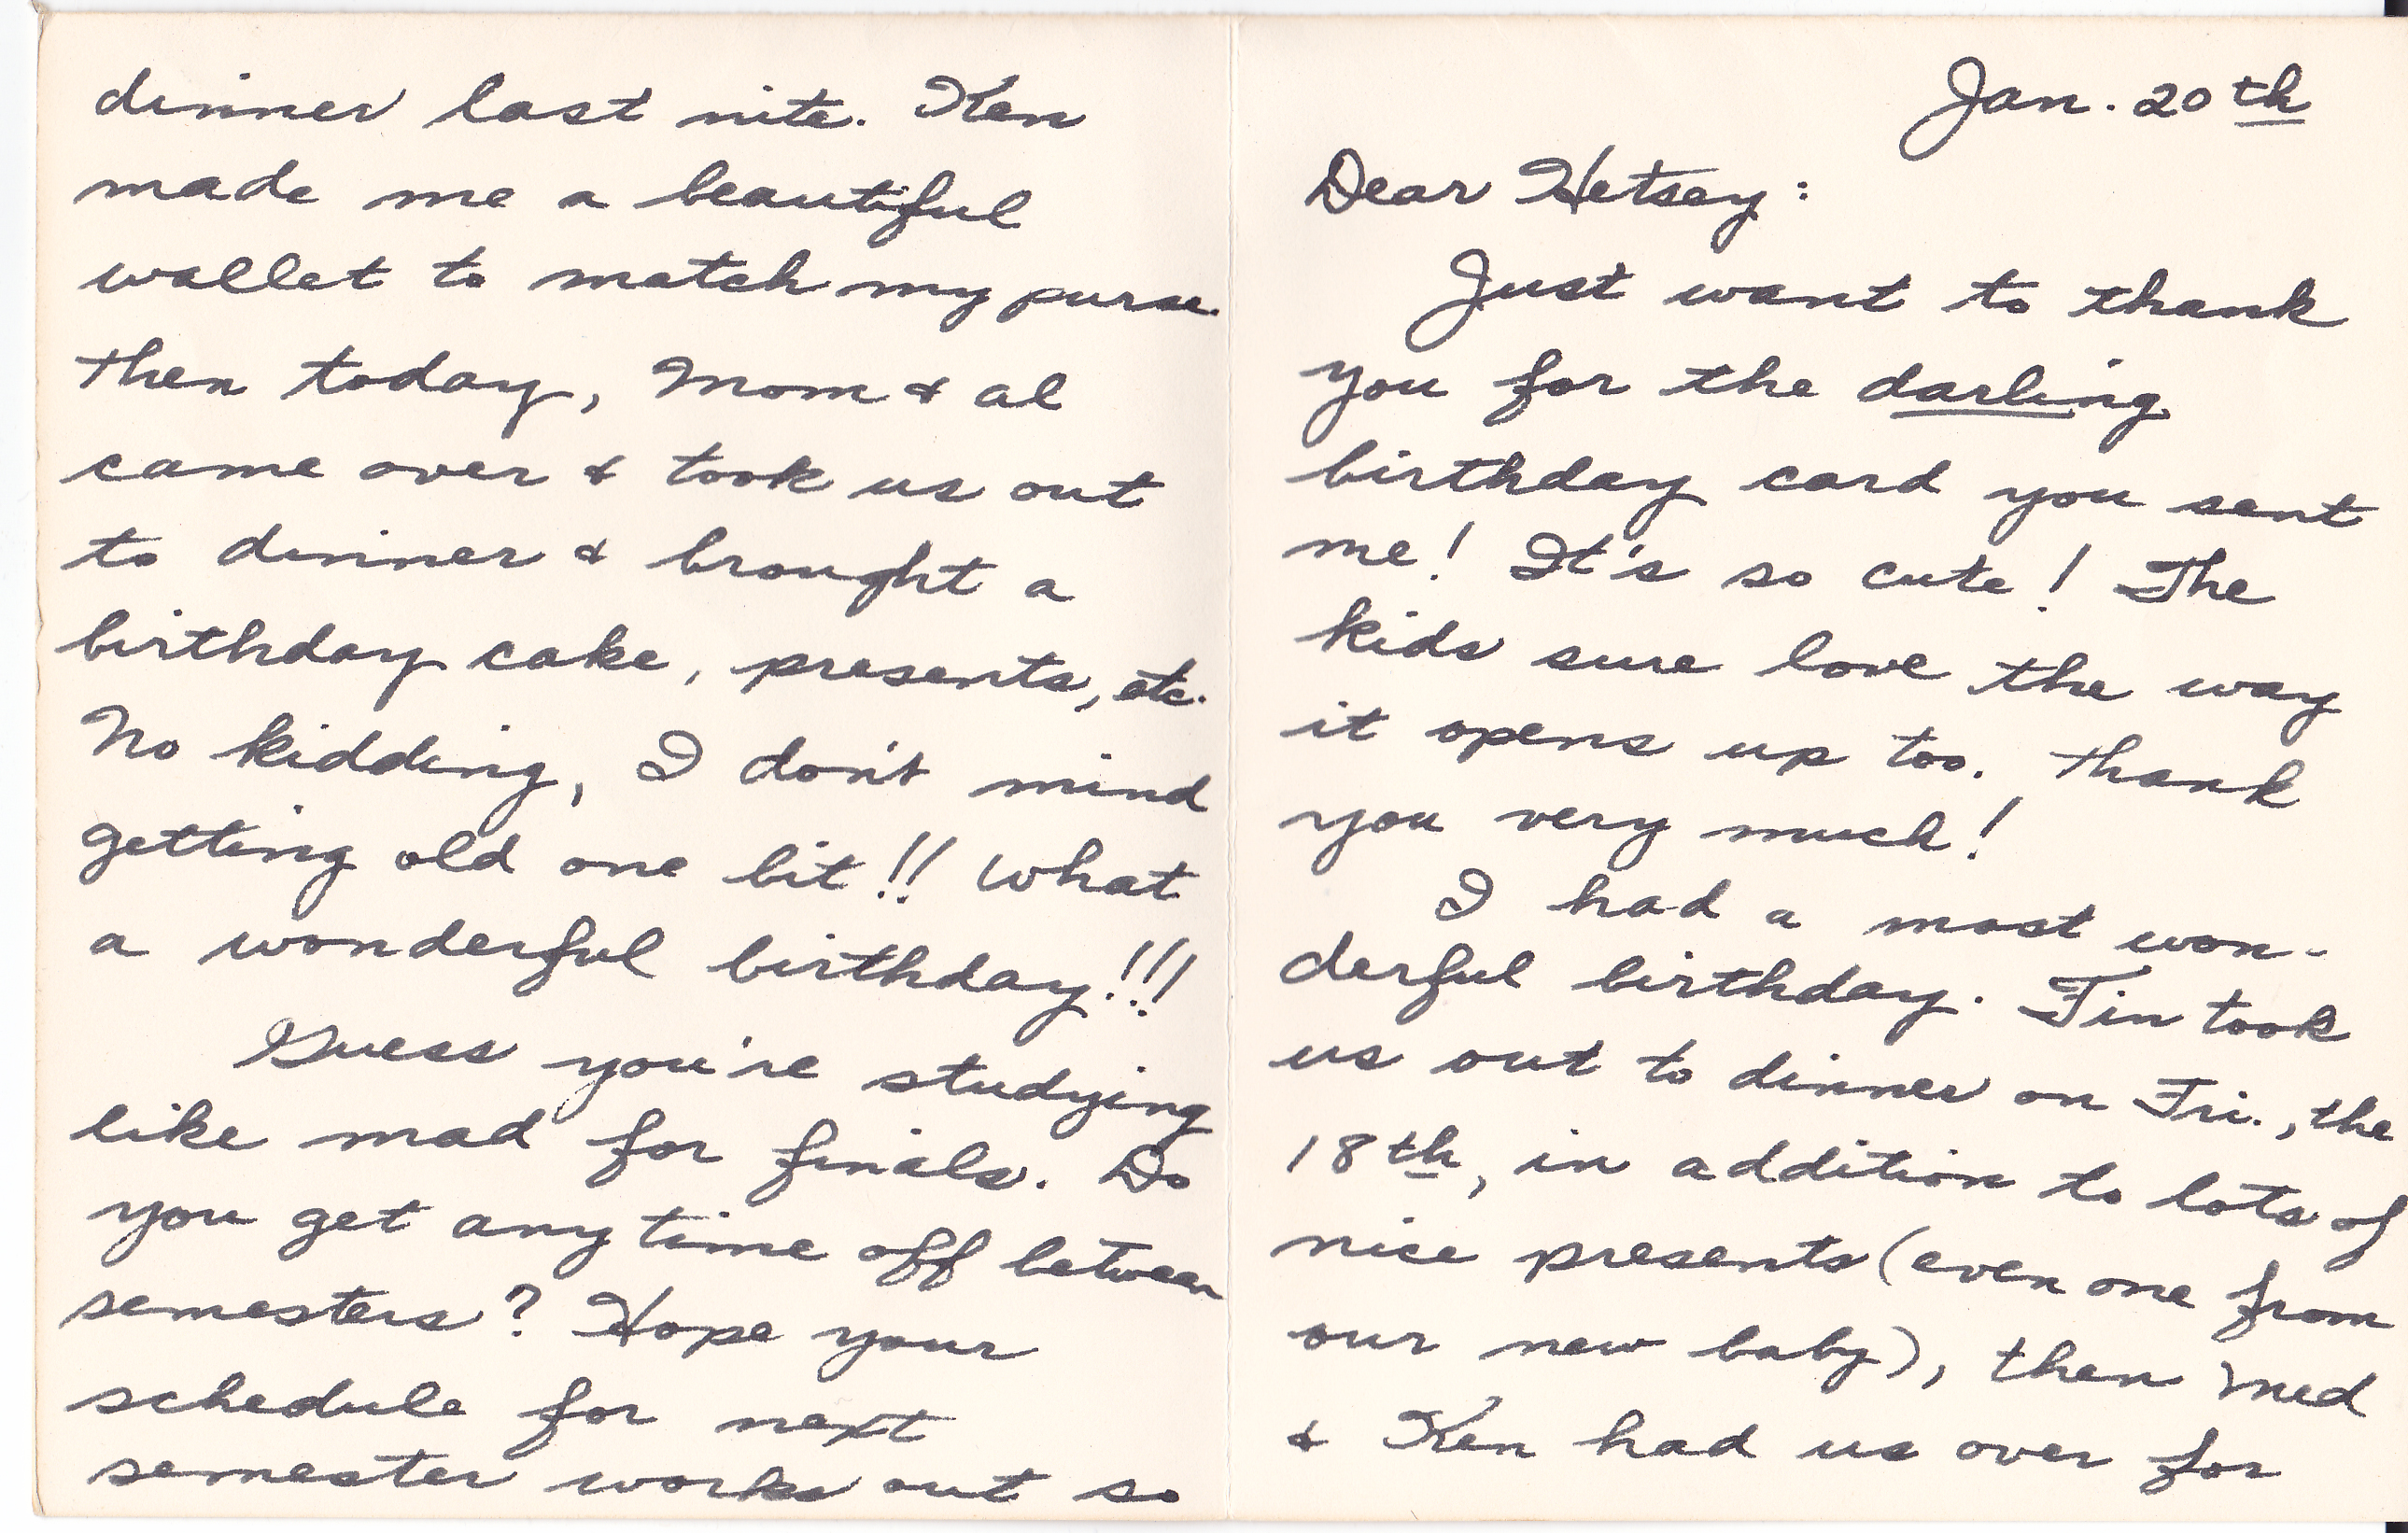 Jan. 20th
Dear Hetsey:
Just want to thank
you for the darling
birthday card you sent
me! It's so cute! The
kids sure love the way
it opens up too. Thank
you very much!
I had a most won-
derful birthday. Tin took
us out to dinner on Fri., the
18th, in addition to lots of
nice presents (even one from
our new baby), then Med
& Ken had us over for
dinner last nite. Ken
made me a beautiful
wallet to match my purse.
Then today, Mom & Al
came over & took us out
to dinner & brought a
birthday cake, presents, etc.
No kidding, I don't mind
getting old one bit!! What
a wonderful birthday!!!
Guess you're studying
like mad for finals. Do
you get any time off between
semesters? Hope your
schedule for next
semester works out so